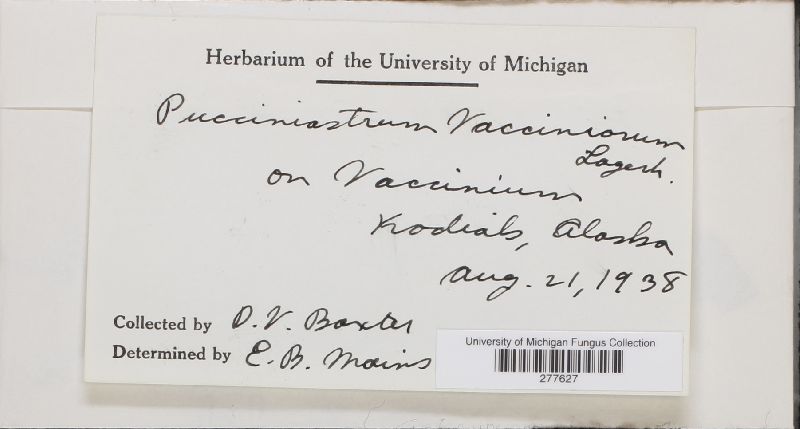 Herbarium of the University of Michigan
Pucciniastrum Vacciniorum
Lagerh.
on Vaccinium
Kodiak, Alaska
Aug. 21, 1938
Collected by D. V. Baxter
Determined by E. B. Mains
University of Michigan Fungus Collection
277627